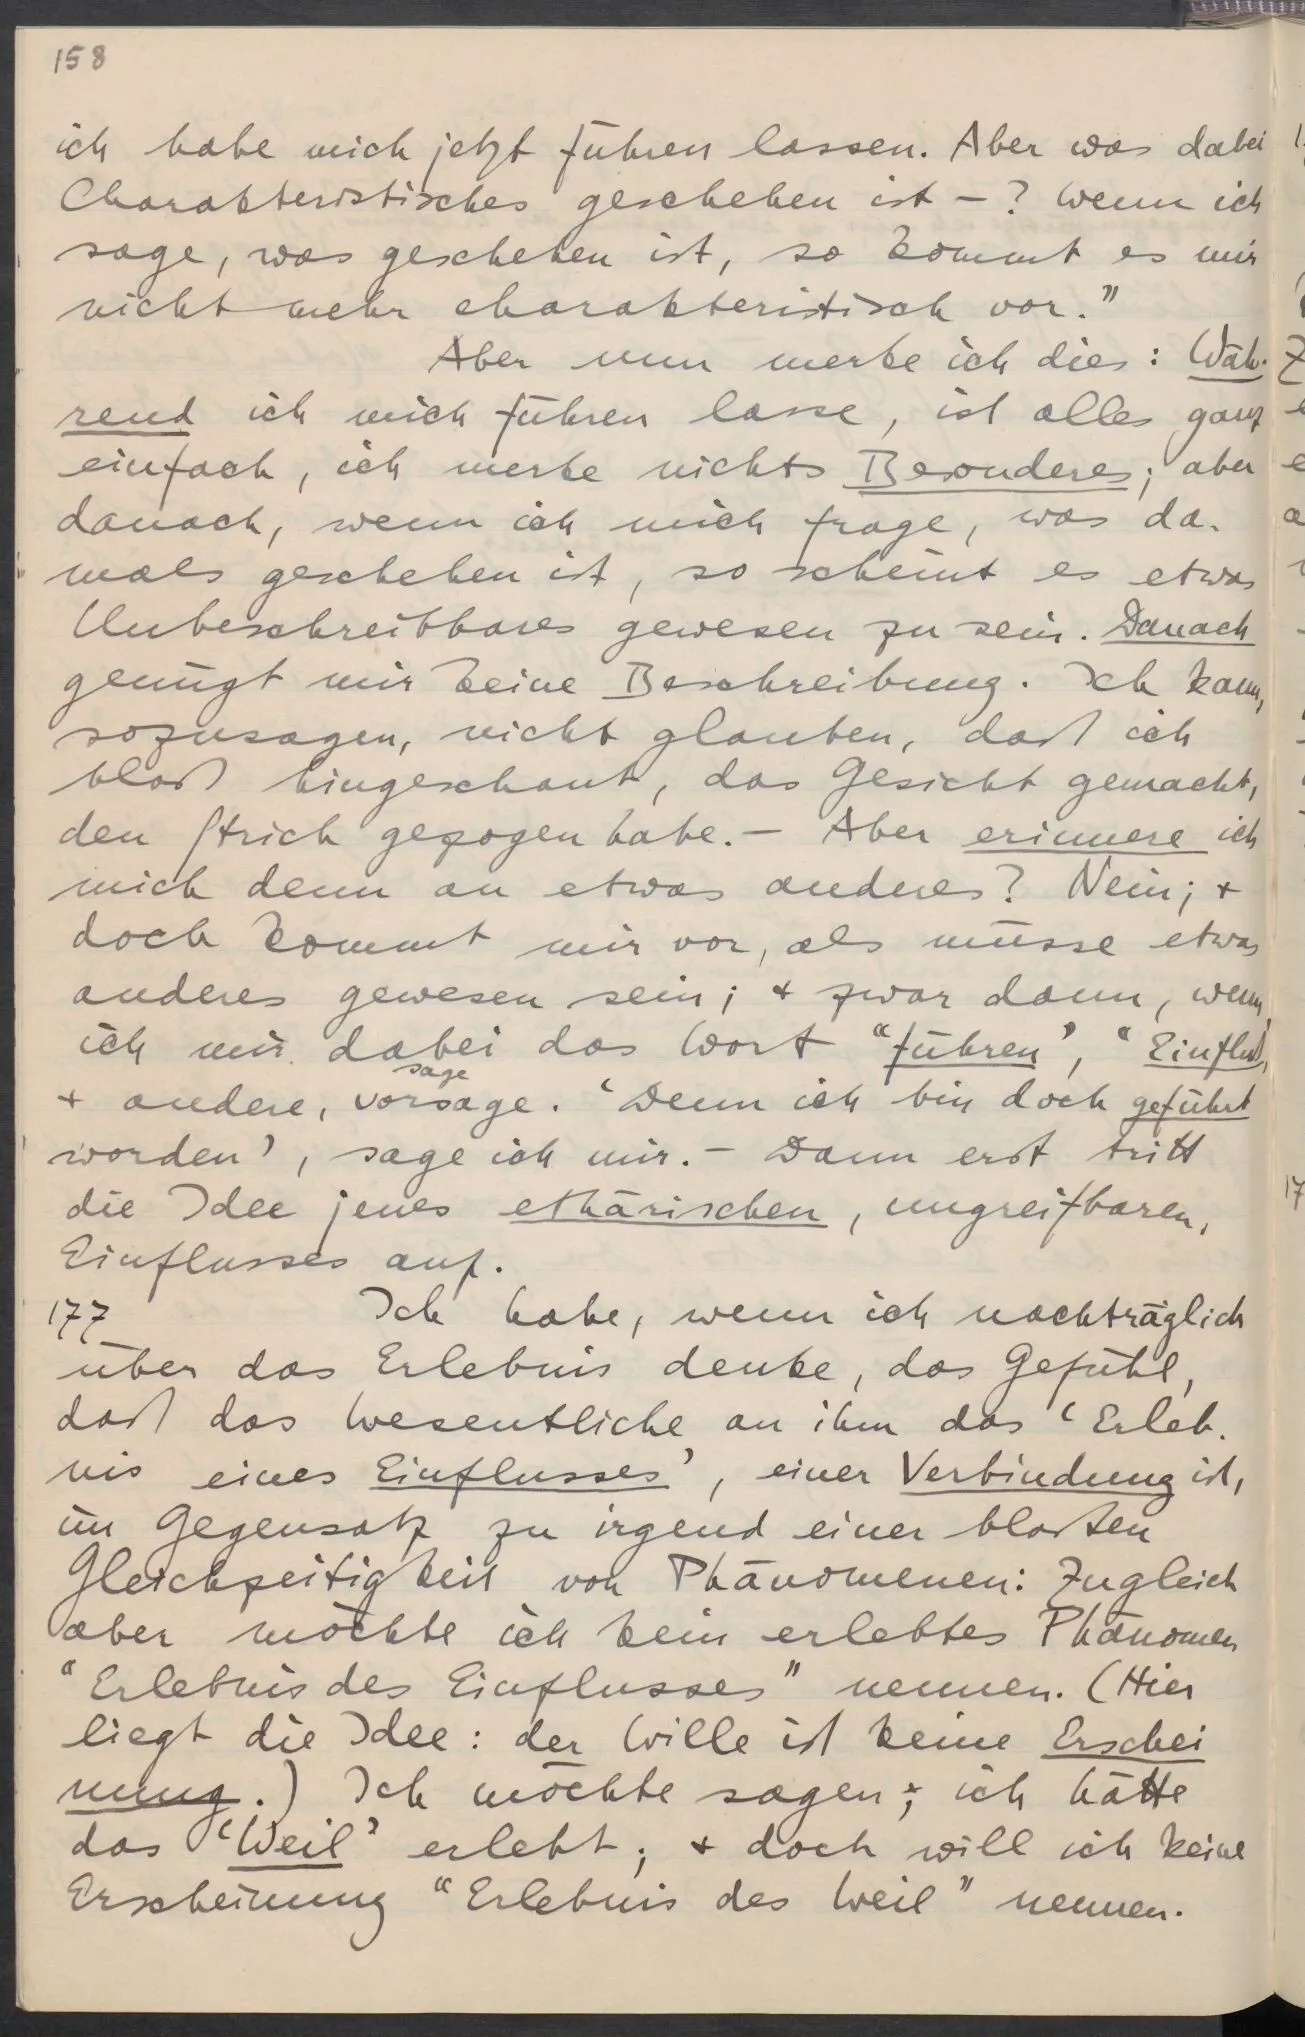 158
ich habe mich jetzt führen lassen. Aber was dabei
Charakteristisches geschehen ist – ? Wenn ich
sage, was geschehen ist, so kommt es mir
nicht mehr charakteristisch vor."
Aber nun merke ich dies: Wäh-
rend ich mich führen lasse, ist alles ganz
einfach, ich merke nichts Besonderes; aber
danach, wenn ich mich frage, was da-
mals geschehen ist, so scheint es etwas
Unbeschreibbares gewesen zu sein. Danach
genügt mir keine Beschreibung. Ich kann,
sozusagen, nicht glauben, daß ich
bloß hingeschaut, das Gesicht gemacht,
den Strich gezogen habe. – Aber erinnere ich
mich denn an etwas anderes? Nein; +
doch kommt mir vor, als müsse etwas
anderes gewesen sein; + zwar dann, wenn
ich mir dabei das Wort "führen", "Einfluß",
sage
+ andere, vorsage. 'Denn ich bin doch geführt
worden', sage ich mir. – Dann erst tritt
die Idee jenes ethärischen, ungreifbaren,
Einflusses auf.
177 Ich habe, wenn ich nachträglich
über das Erlebnis denke, das Gefühl,
daß das Wesentliche an ihm das 'Erleb-
nis eines Einflusses', einer Verbindung ist,
im Gegensatz zu irgend einer bloßen
Gleichzeitigkeit von Phänomenen: Zugleich
aber möchte ich kein erlebtes Phänomen
"Erlebnis des Einflusses" nennen. (Hier
liegt die Idee: der Wille ist keine Erschei
nung.) Ich möchte sagen, ich hätte
das 'Weil' erlebt; + doch will ich keine
Erscheinung "Erlebnis des Weil" nennen.